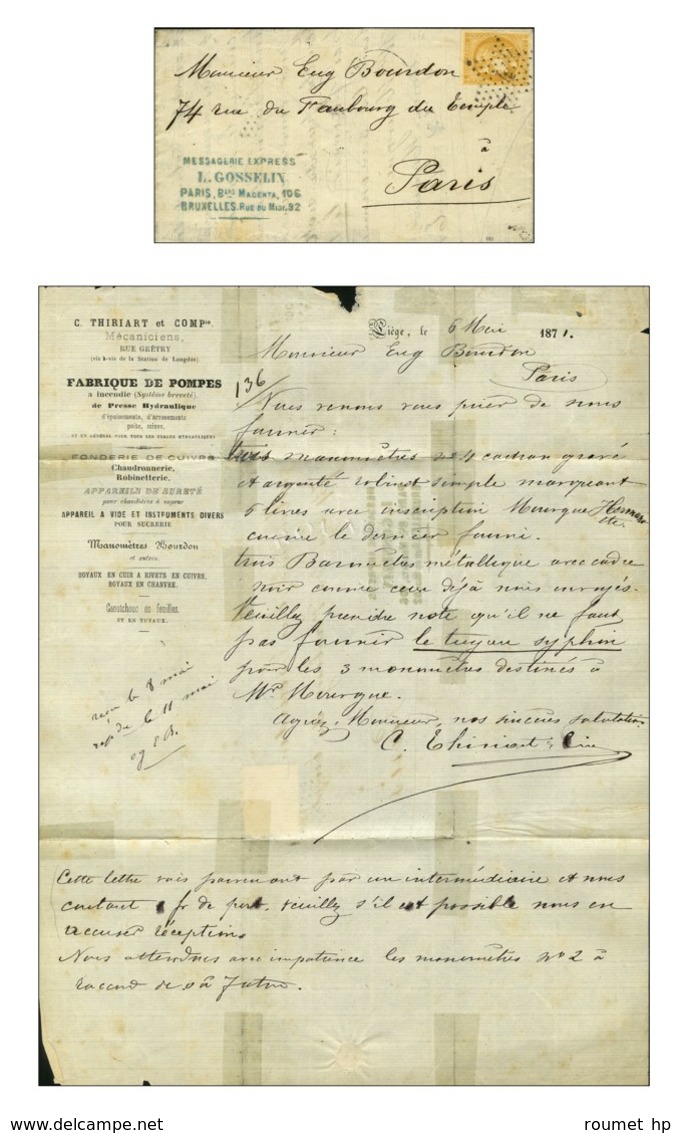 Monsieur Eug Bourdon
74 rue du Faubourg du Temple
à
Paris
MESSAGERIE EXPRESS
L. GOSSELIN
PARIS, Bard MAGENTA, 106
BRUXELLES. RUE DU MIDI. 92
C. THIRIART et COMPie
Mécaniciens,
RUE GRÉTRY
(vis à-vis de la Station de Longdoz).
FABRIQUE DE POMPES
à incendie (Système breveté)
de Presse Hydraulique
d'épuisements, d'arrosements
puits, mines,
ET EN GÉNÉRAL POUR TOUS LES USAGES HYDRAULIQUES
FONDERIE DE CUIVRE
Chaudronnerie,
Robinetterie,
APPAREILS DE SURETÉ
pour chaudières à vapeur
APPAREIL A VIDE ET INSTRUMENTS DIVERS
POUR SUCRERIE
Manomètres Bourdon
et autres.
BOYAUX EN CUIR A RIVETS EN CUIVRE,
BOYAUX EN CHANVRE.
Caoutchouc en feuilles
ET EN TUYAUX.
reçu le 8 mai
rép du le 11 mai
Liège, le 6 Mai 1871.
Monsieur Eug Bourdon
Paris
136
Nous venons vous prier de nous
fournir:
trois manomètres n° 4 cadran gravé
et argenté robinet simple marquant
5 livres avec inscription Mourgue
comme le dernier fourni.
trois Baromètres métallique avec cadre
noir comme ceux déjà nous envoyés.
Veuillez prendre note qu'il ne faut
pas fournir le tuyau syphon
pour les 3 manomètres destinés à
Mr Mourgue.
Agréez, Monsieur, nos sincères salutations
C. Thiriart & Cie
Cette lettre vous parvenant par un intermédiaire et nous
coutant 1 fr de port, veuillez s'il est possible nous en
accuser réception.
Nous attendons avec impatience les manomètres n° 2 à
raccord de
www.delcampe.net
roumet hp